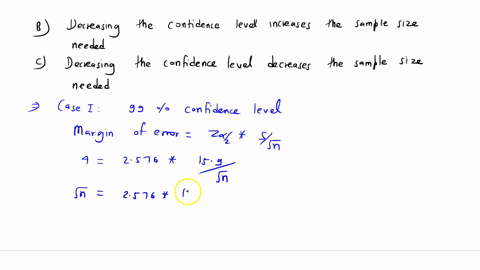 B) Decreasing the confidence level increases the sample size
needed
C) Decreasing the confidence level decreases the sample size
needed
⇒ Case I: 99 % confidence level
Margin of error = Zα/2 * S/√n
4 = 2.576 * 15.9/√n
√n = 2.576 * 1.